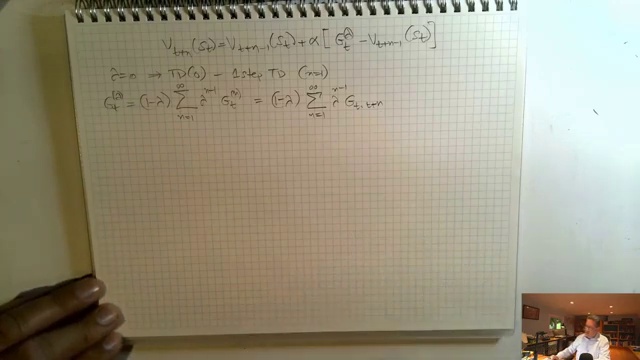 V_{t+n}(S_t) = V_{t+n-1}(S_t) + α[G_t^{(λ)} - V_{t+n-1}(S_t)]
λ=0 ⇒ TD(0) - 1 step TD (n=1)
G_t^{(λ)} = (1-λ) ∑_{n=1}^{∞} λ^{n-1} G_t^{(n)} = (1-λ) ∑_{n=1}^{∞} λ^{n-1} G_{t, t+n}